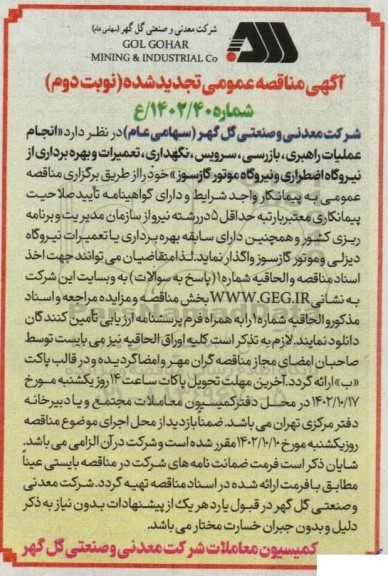 شرکت معدنی و صنعتی گل گهر (سهامی عام)
GOL GOHAR
MINING & INDUSTRIAL Co
آگهی مناقصه عمومی تجدید شده (نوبت دوم)
شماره ۱۴۰۲/۴۰/ع
شرکت معدنی و صنعتی گل گهر (سهامی عام) در نظر دارد «انجام
عملیات راهبری، بازرسی، سرویس، نگهداری، تعمیرات و بهره برداری از
نیروگاه اضطراری و نیروگاه موتور گازسوز» خود را از طریق برگزاری مناقصه
عمومی به پیمانکار واجد شرایط و دارای گواهینامه تأیید صلاحیت
پیمانکاری معتبر با رتبه حداقل ۵ در رشته نیرو از سازمان مدیریت و برنامه
ریزی کشور و همچنین دارای سابقه بهره برداری یا تعمیرات نیروگاه
دیزلی و موتور گازسوز واگذار نماید. لذا متقاضیان می توانند جهت اخذ
اسناد مناقصه و الحاقیه شماره ۱ (پاسخ به سوالات) به وبسایت این شرکت
به نشانی WWW.GEG.IR بخش مناقصه و مزایده مراجعه و اسناد
مذکور و الحاقیه شماره ۱ را به همراه فرم پرسشنامه ارزیابی تأمین کنندگان
دانلود نمایند. لازم به تذکر است کلیه اوراق الحاقیه نیز می بایست توسط
صاحبان امضای مجاز مناقصه گران مهر و امضا گردیده و در قالب پاکت
«ب» ارائه گردد. آخرین مهلت تحویل پاکات ساعت ۱۴ روز یکشنبه مورخ
۱۴۰۲/۱۰/۱۷ در محل دفتر کمیسیون معاملات مجتمع و یا دبیرخانه
دفتر مرکزی تهران می باشد. ضمناً بازدید از محل اجرای موضوع مناقصه
روز یکشنبه مورخ ۱۴۰۲/۱۰/۱۰ مقرر شده است و شرکت در آن الزامی می باشد.
شایان ذکر است فرمت ضمانت نامه های شرکت در مناقصه بایستی عیناً
مطابق با فرمت ارائه شده در اسناد مناقصه تهیه گردد. شرکت معدنی
و صنعتی گل گهر در قبول یا رد هر یک از پیشنهادات بدون نیاز به ذکر
دلیل و بدون جبران خسارت مختار می باشد.
کمیسیون معاملات شرکت معدنی و صنعتی گل گهر